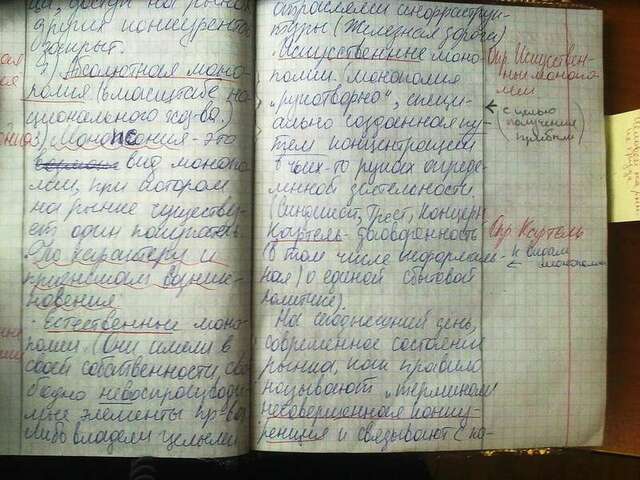 ца, доступ на рынок
других конкурентов
закрыт.
2) Абсолютная моно-
полия (в масштабе на-
ционального хоз-ва.)
3) Монопсония - это
вид монопо-
лии, при котором
на рынке существу-
ет один покупатель.
По характеру и
причинам возник-
новения
- Естественные моно-
полии. (Они имели в
своей собственности сво-
бодно невоспроизводи-
мые элементы пр-ва,
либо владели целыми
отраслями инфраструк-
туры (Железная дорога)
- Искусственные моно-
полии (монополия
„рукотворно", специ-
ально созданная пу-
тём концентрации
в чьих-то руках опреде-
лённой деятельности.
(Синдикат, Трест, Концерн
Картель - договорённость
(в том числе неформаль-
ная) о единой сбытовой
политике).
На сегодняшний день,
современное состояние
рынка, как правило
называют „термином
несовершенная конку-
ренция и связывают с по-
Опр Искусствен-
ные монопо-
лии
с целью
получения
прибыли
Опр Картель
к видам
монополии